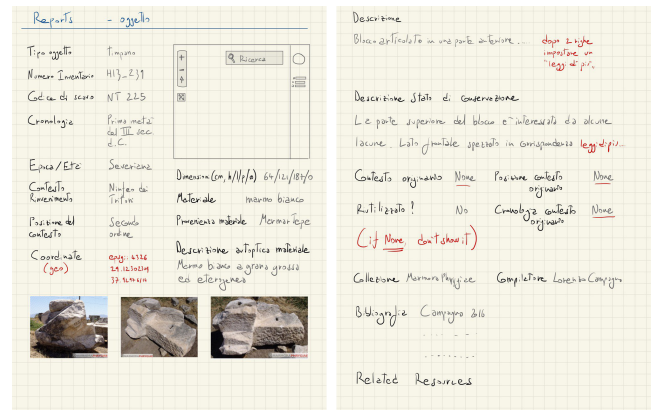 Reports - oggetto
Tipo oggetto timpano
Numero Inventario H13-239
Ricerca
Codice di scavo NT 225
Cronologia Prima metà
del III sec
d.C.
Epoca/Età Severiana
Contesto Rinvenimento Ninfeo dei Tritoni
Posizione del contesto Secondo ordine
Coordinate (geo) epsg: 4326
Dimensioni (cm, h/l/p/ø) 64/121/187/0
Materiale marmo bianco
Provenienza materiale Mermertepe
Descrizione autoptica materiale
Marmo bianco a grana grossa
ed eterogenea
Descrizione
Blocco articolato in una parte anteriore...
dopo 2 righe
impostare un
"leggi di più"
Descrizione Stato di conservazione
Le parte superiore del blocco è interessata da alcune
lacune. Lato frontale spezzato in corrispondenza leggi di più...
Contesto originario None Posizione contesto originario None
Riutilizzato? No Cronologia contesto originario None
(if None, don't show it)
Collezione Marmora Phrygiae Compilatore Lorenzo Campagna
Bibliografia Campagna 2016
Related Resources